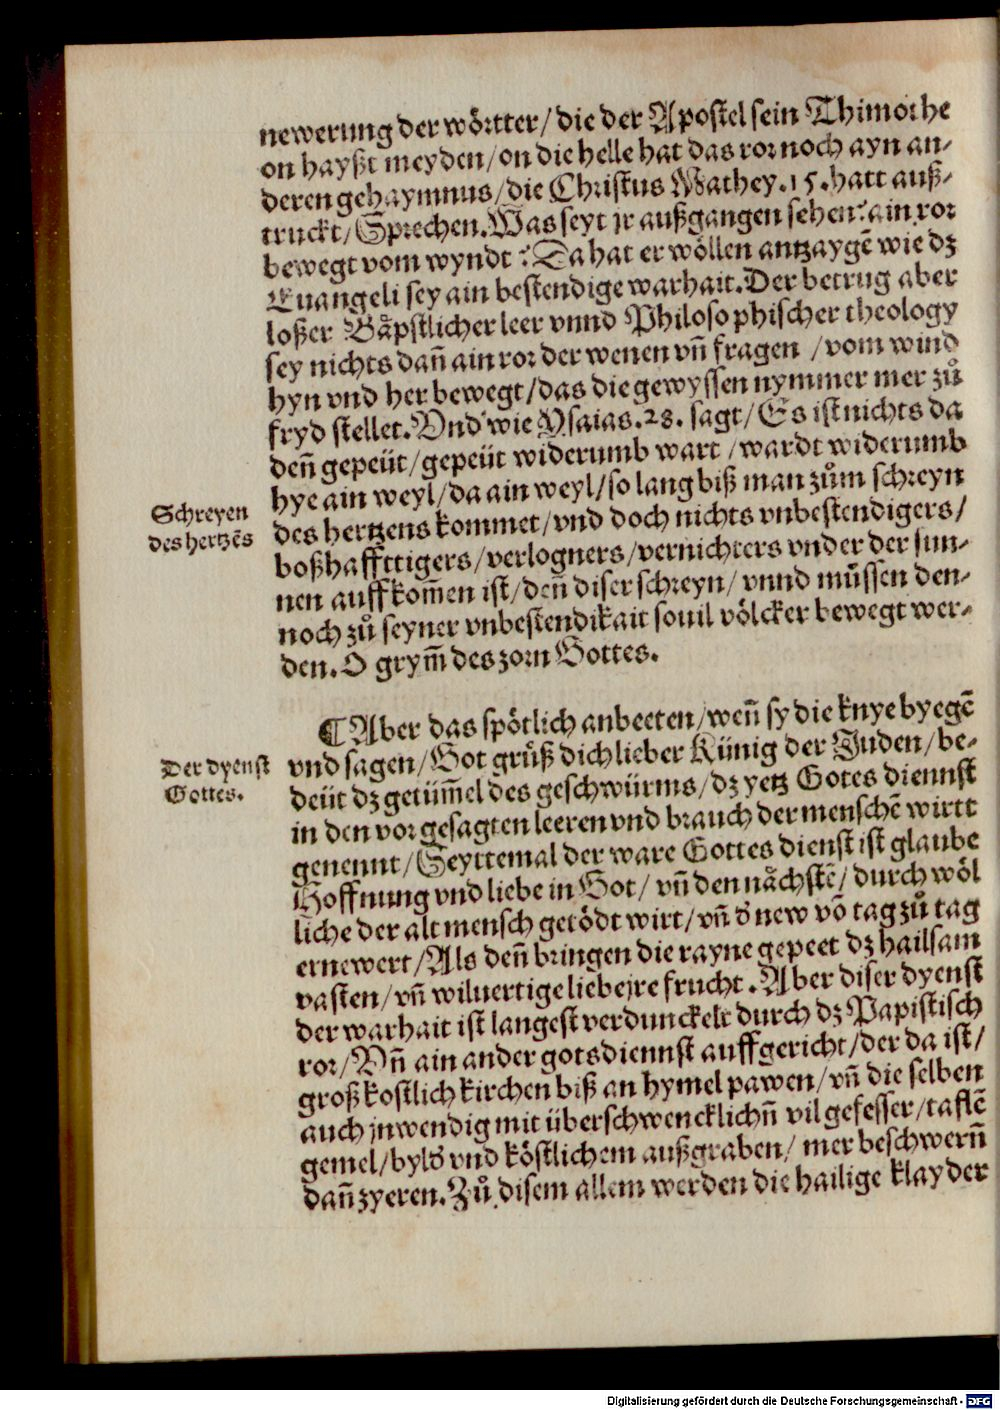 newerung der wörtter/ die der Apostel sein Thimothe
on hayßt meyden/ on die helle hat das ror noch ayn an-
deren gehaymnus/ die Christus Mathey. 15. hatt auß-
truckt/ Sprechen. Was seyt jr außgangen sehen? ain ror
bewegt vom wyndt? Da hat er wöllen antzaygē wie dz
Euangeli sey ain bestendige warhait. Der betrug aber
loßer Bäpstlicher leer vnnd Philosophischer theology
sey nichts dañ ain ror der wenen vñ fragen / vom wind
hyn vnd her bewegt/ das die gewyssen nymmer mer zů
fryd stellet. Vnd wie Ysaias. 28. sagt/ Es ist nichts da
deñ gepeüt/ gepeüt widerumb wart / wardt widerumb
hye ain weyl/ da ain weyl/ so lang biß man zům schreyn
Schreyen
des hertzēs
des hertzens kommet/ vnd doch nichts vnbestendigers/
boßhaffttigers/ verlogners/ vernichters vnder der sun-
nen auffkom̄en ist/ deñ diser schreyn/ vnnd müssen den-
noch zů seyner vnbestendikait souil völcker bewegt wer-
den. O grym̄ des zorn Gottes.
¶ Aber das spötlich anbeeten/ weñ sy die knye byegē
vnd sagen/ Got grüß dich lieber Künig der Juden/ be-
Der dyenst
Gottes.
deüt dz getüm̄el des geschwürms/ dz yetz Gotes diennst
in den vor gesagten leeren vnd brauch der menschē wirtt
genennt/ Seyttemal der ware Gottes dienst ist glaube
Hoffnung vnd liebe in Got/ vñ den nächstē/ durch wöl
liche der alt mensch getödt wirt/ vñ d' new vō tag zů tag
ernewert/ Als deñ bringen die rayne gepeet dz hailsam
vasten/ vñ wiluertige liebe jre frucht. Aber diser dyenst
der warhait ist langest verdunckelt durch dz Papistisch
ror/ Vñ ain ander gotsdiennst auffgericht/ der da ist/
groß kostlich kirchen biß an hymel pawen/ vñ die selben
auch jnwendig mit überschwencklichñ vil gefesser/ taflē
gemel/ byld' vnd köstlichem außgraben/ mer beschwerñ
dañ zyeren. Zů disem allem werden die hailige klayder
Digitalisierung gefördert durch die Deutsche Forschungsgemeinschaft - DFG